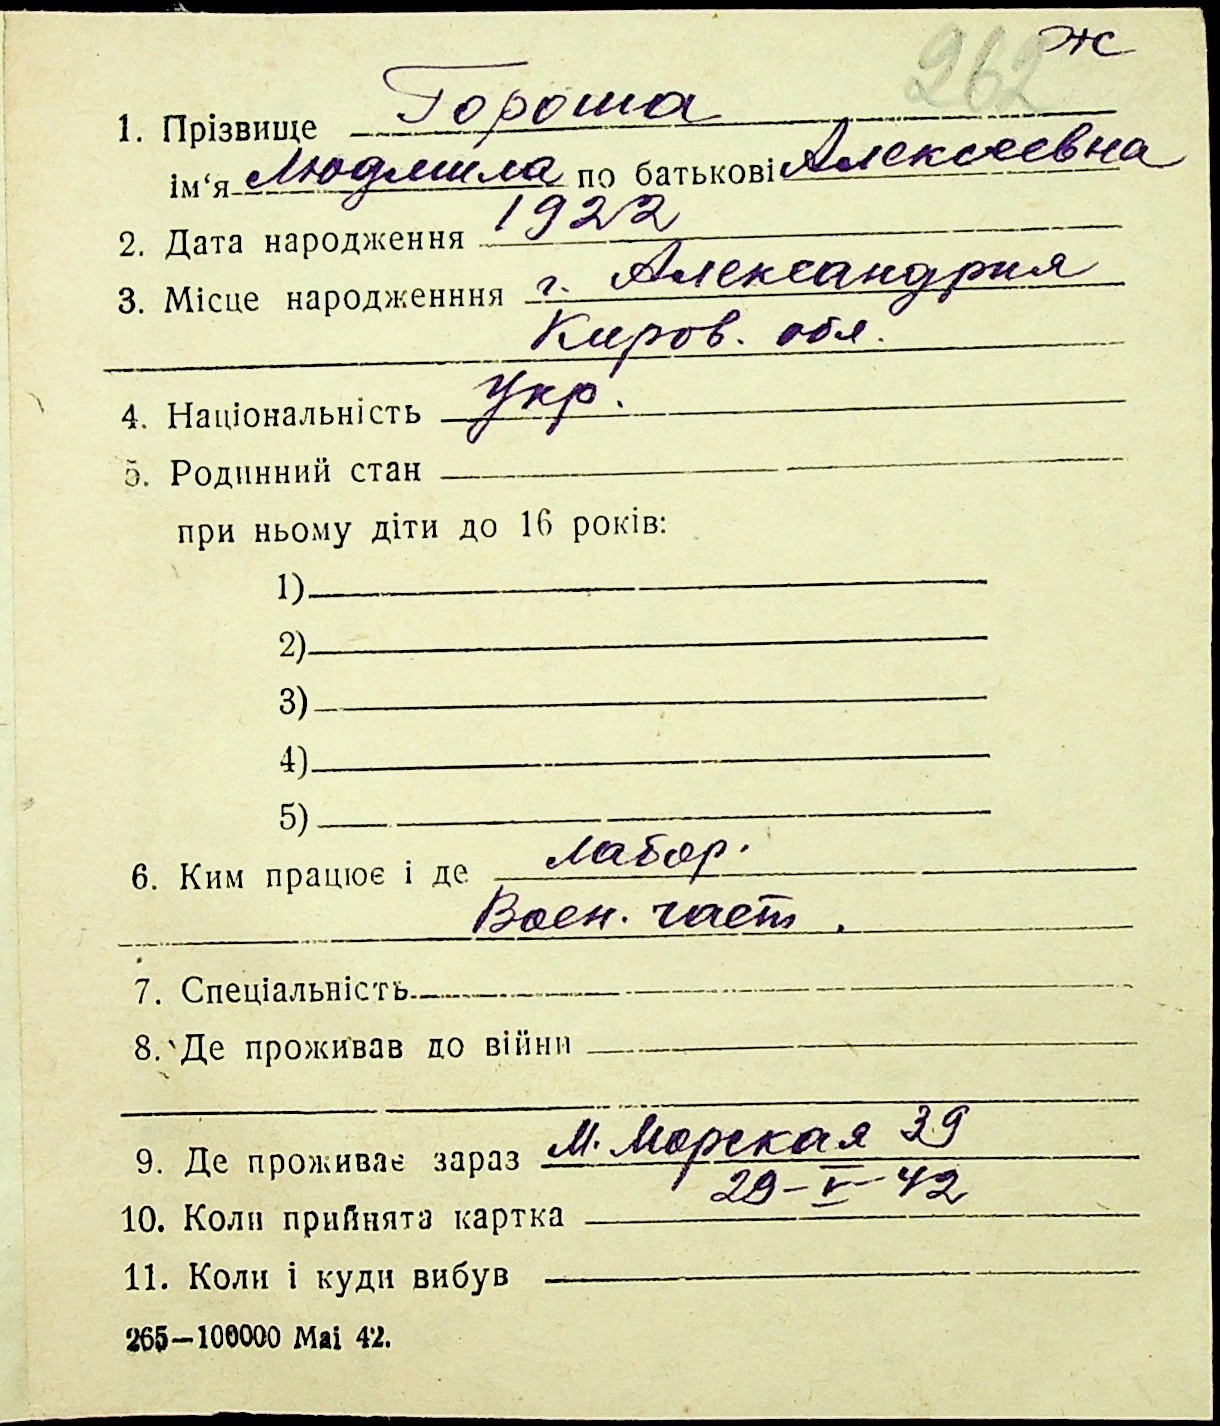 262 ж
1. Прізвище Гороша
ім‘я Людмила по батькові Алексеевна
2. Дата народження 1922
3. Місце народженння г. Александрия
Киров. обл.
4. Національність Укр.
5. Родинний стан
при ньому діти до 16 років:
1)
2)
3)
4)
5)
6. Ким працює і де лабор.
Воен. част.
7. Спеціальність
8. Де проживав до війни
9. Де проживає зараз М. Морская 39
10. Коли прийнята картка 29-V-42
11. Коли і куди вибув
265—100000 Маі 42.